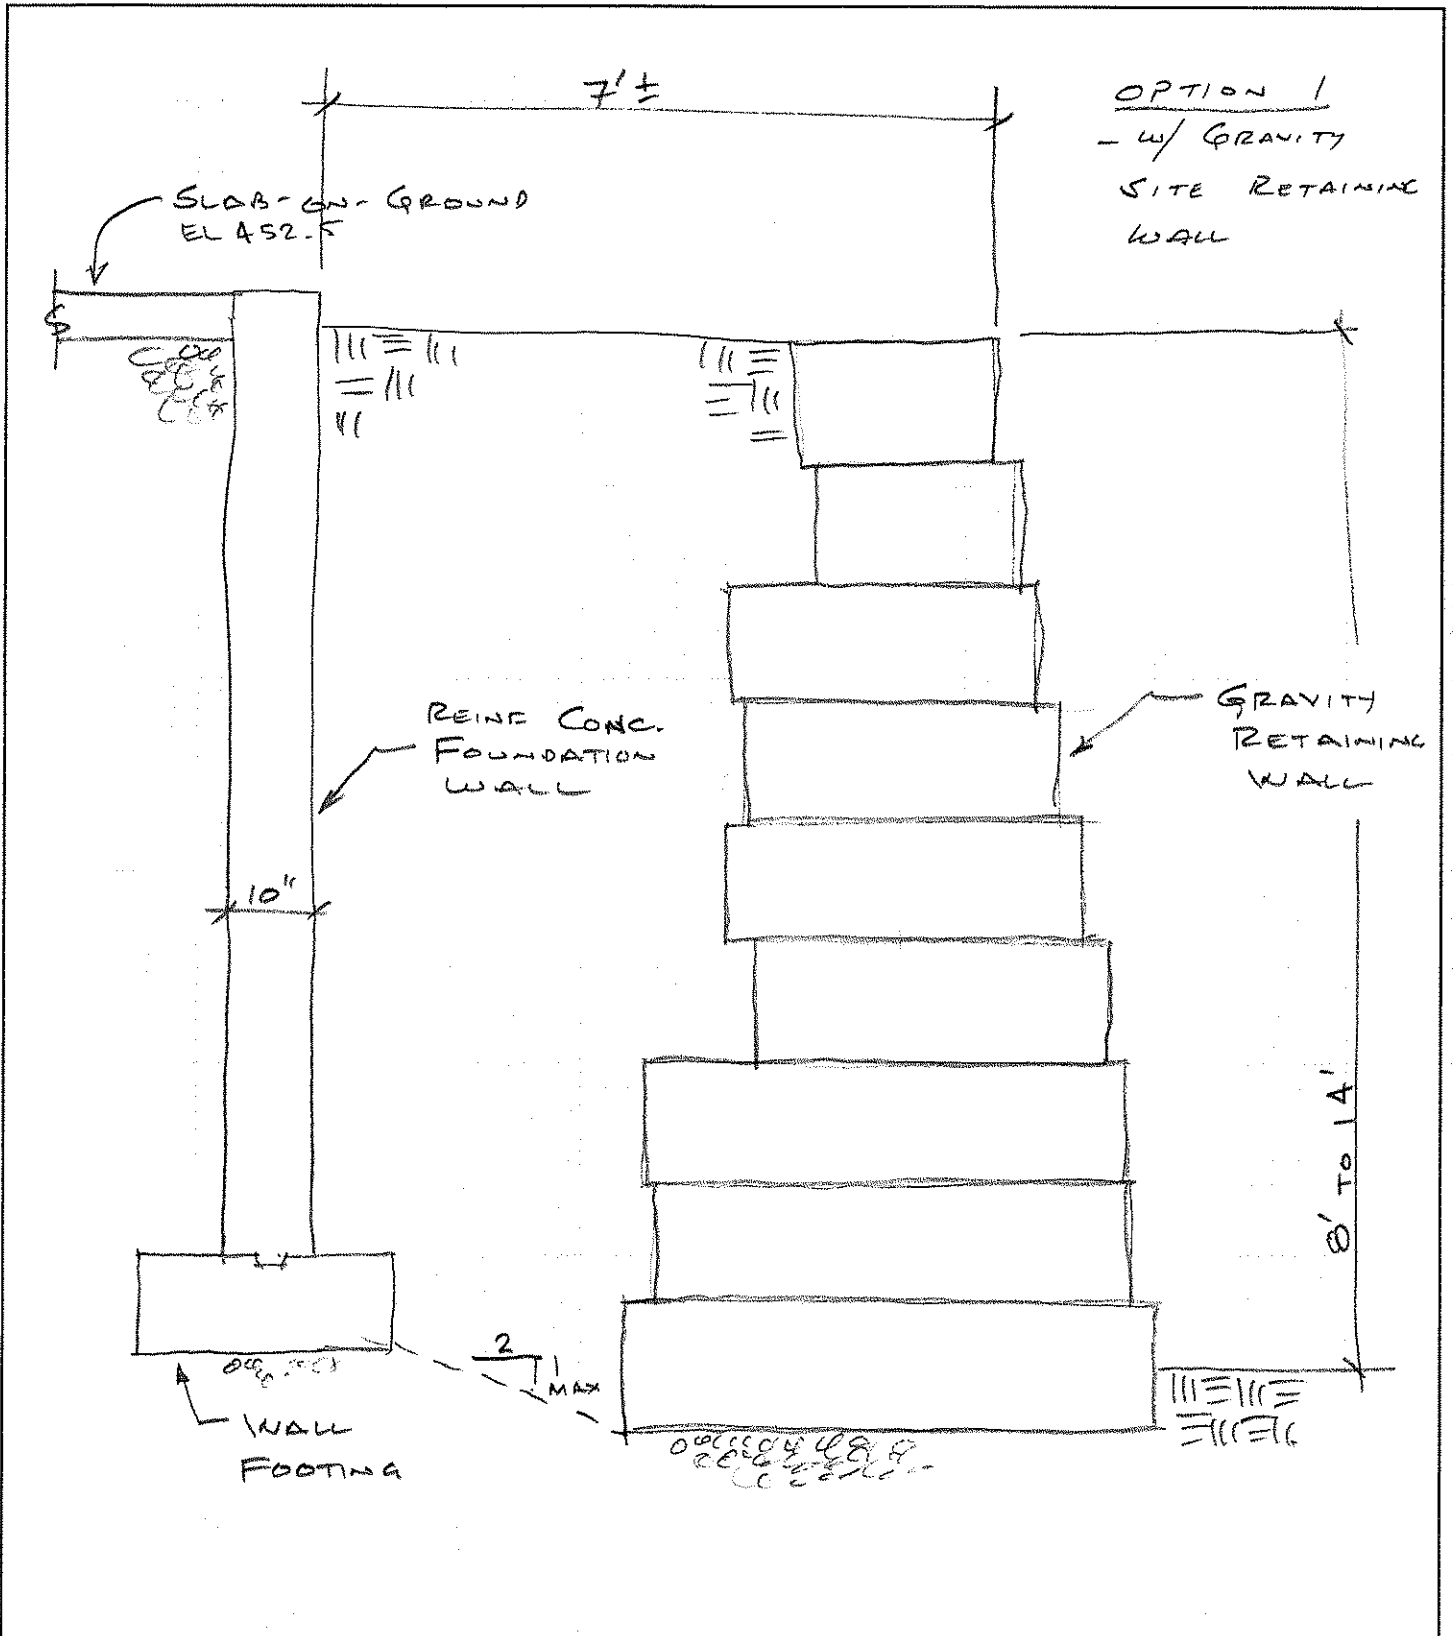 7' ±
OPTION 1
- W/ GRAVITY
SITE RETAINING
WALL
SLAB-ON-GROUND
EL 452.5
REINF CONC.
FOUNDATION
WALL
GRAVITY
RETAINING
WALL
10"
8' TO 14'
2
1
MAX
WALL
FOOTING